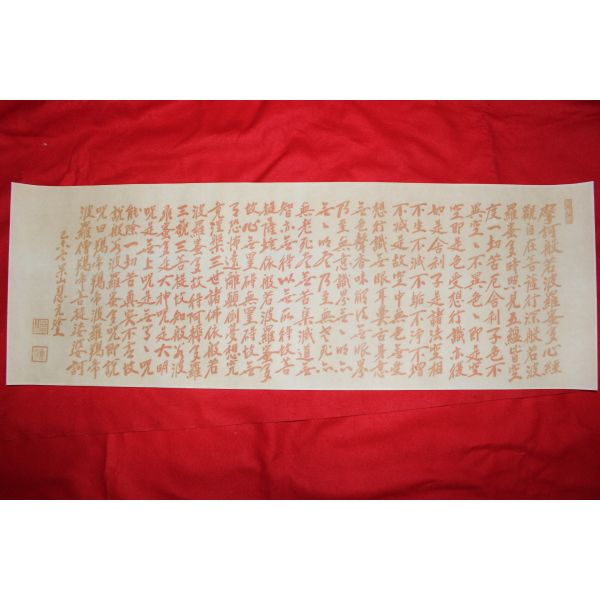 摩何般若波羅蜜多心經
觀自在菩薩行深般若波
羅蜜多時照見五蘊皆空
度一切苦厄舍利子色不
異空〻不異色〻即是空
空即是色受想行識亦復
如是舍利子是諸法空相
不生不滅不垢不淨不增
不減是故空中無色無受
想行識無眼耳鼻舌身意
無色聲香味觸法無眼界
乃至無意識界無〻明亦
無〻明盡乃至無老死亦
無老死盡無苦集滅道無
智亦無得以無所得故菩
提薩埵依般若波羅蜜多
故心無罣碍無罣碍故無
有恐怖遠離顚倒夢想究
竟涅槃三世諸佛依般若
波羅蜜多故得阿耨多羅
三藐三菩提故知般若波
羅蜜多是大神呪是大明
呪是無上呪是無等〻呪
能除一切苦眞實不虛故
說般若波羅蜜多呪即說
呪曰揭帝揭帝波羅揭帝
波羅僧揭帝菩提娑婆訶
己未